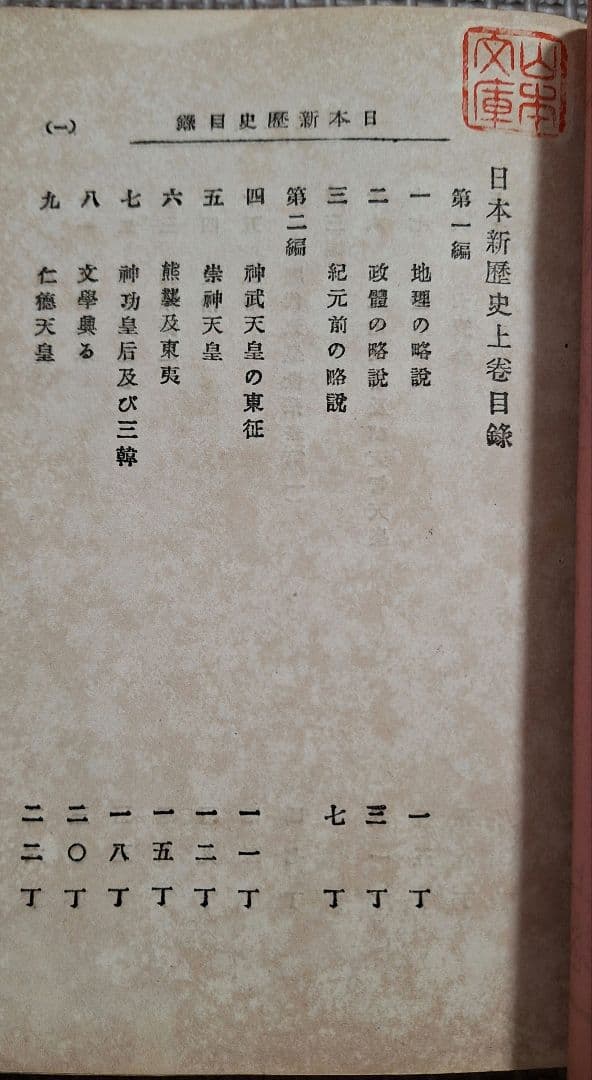 山本文庫
日本新歷史目錄
(一)
日本新歷史上卷目錄
第一編
一 地理の略說 一丁
二 政體の略說 三丁
三 紀元前の略說 七丁
第二編
四 神武天皇の東征 一一丁
五 崇神天皇 一二丁
六 熊襲及東夷 一五丁
七 神功皇后及び三韓 一八丁
八 文學興る 二〇丁
九 仁德天皇 二二丁